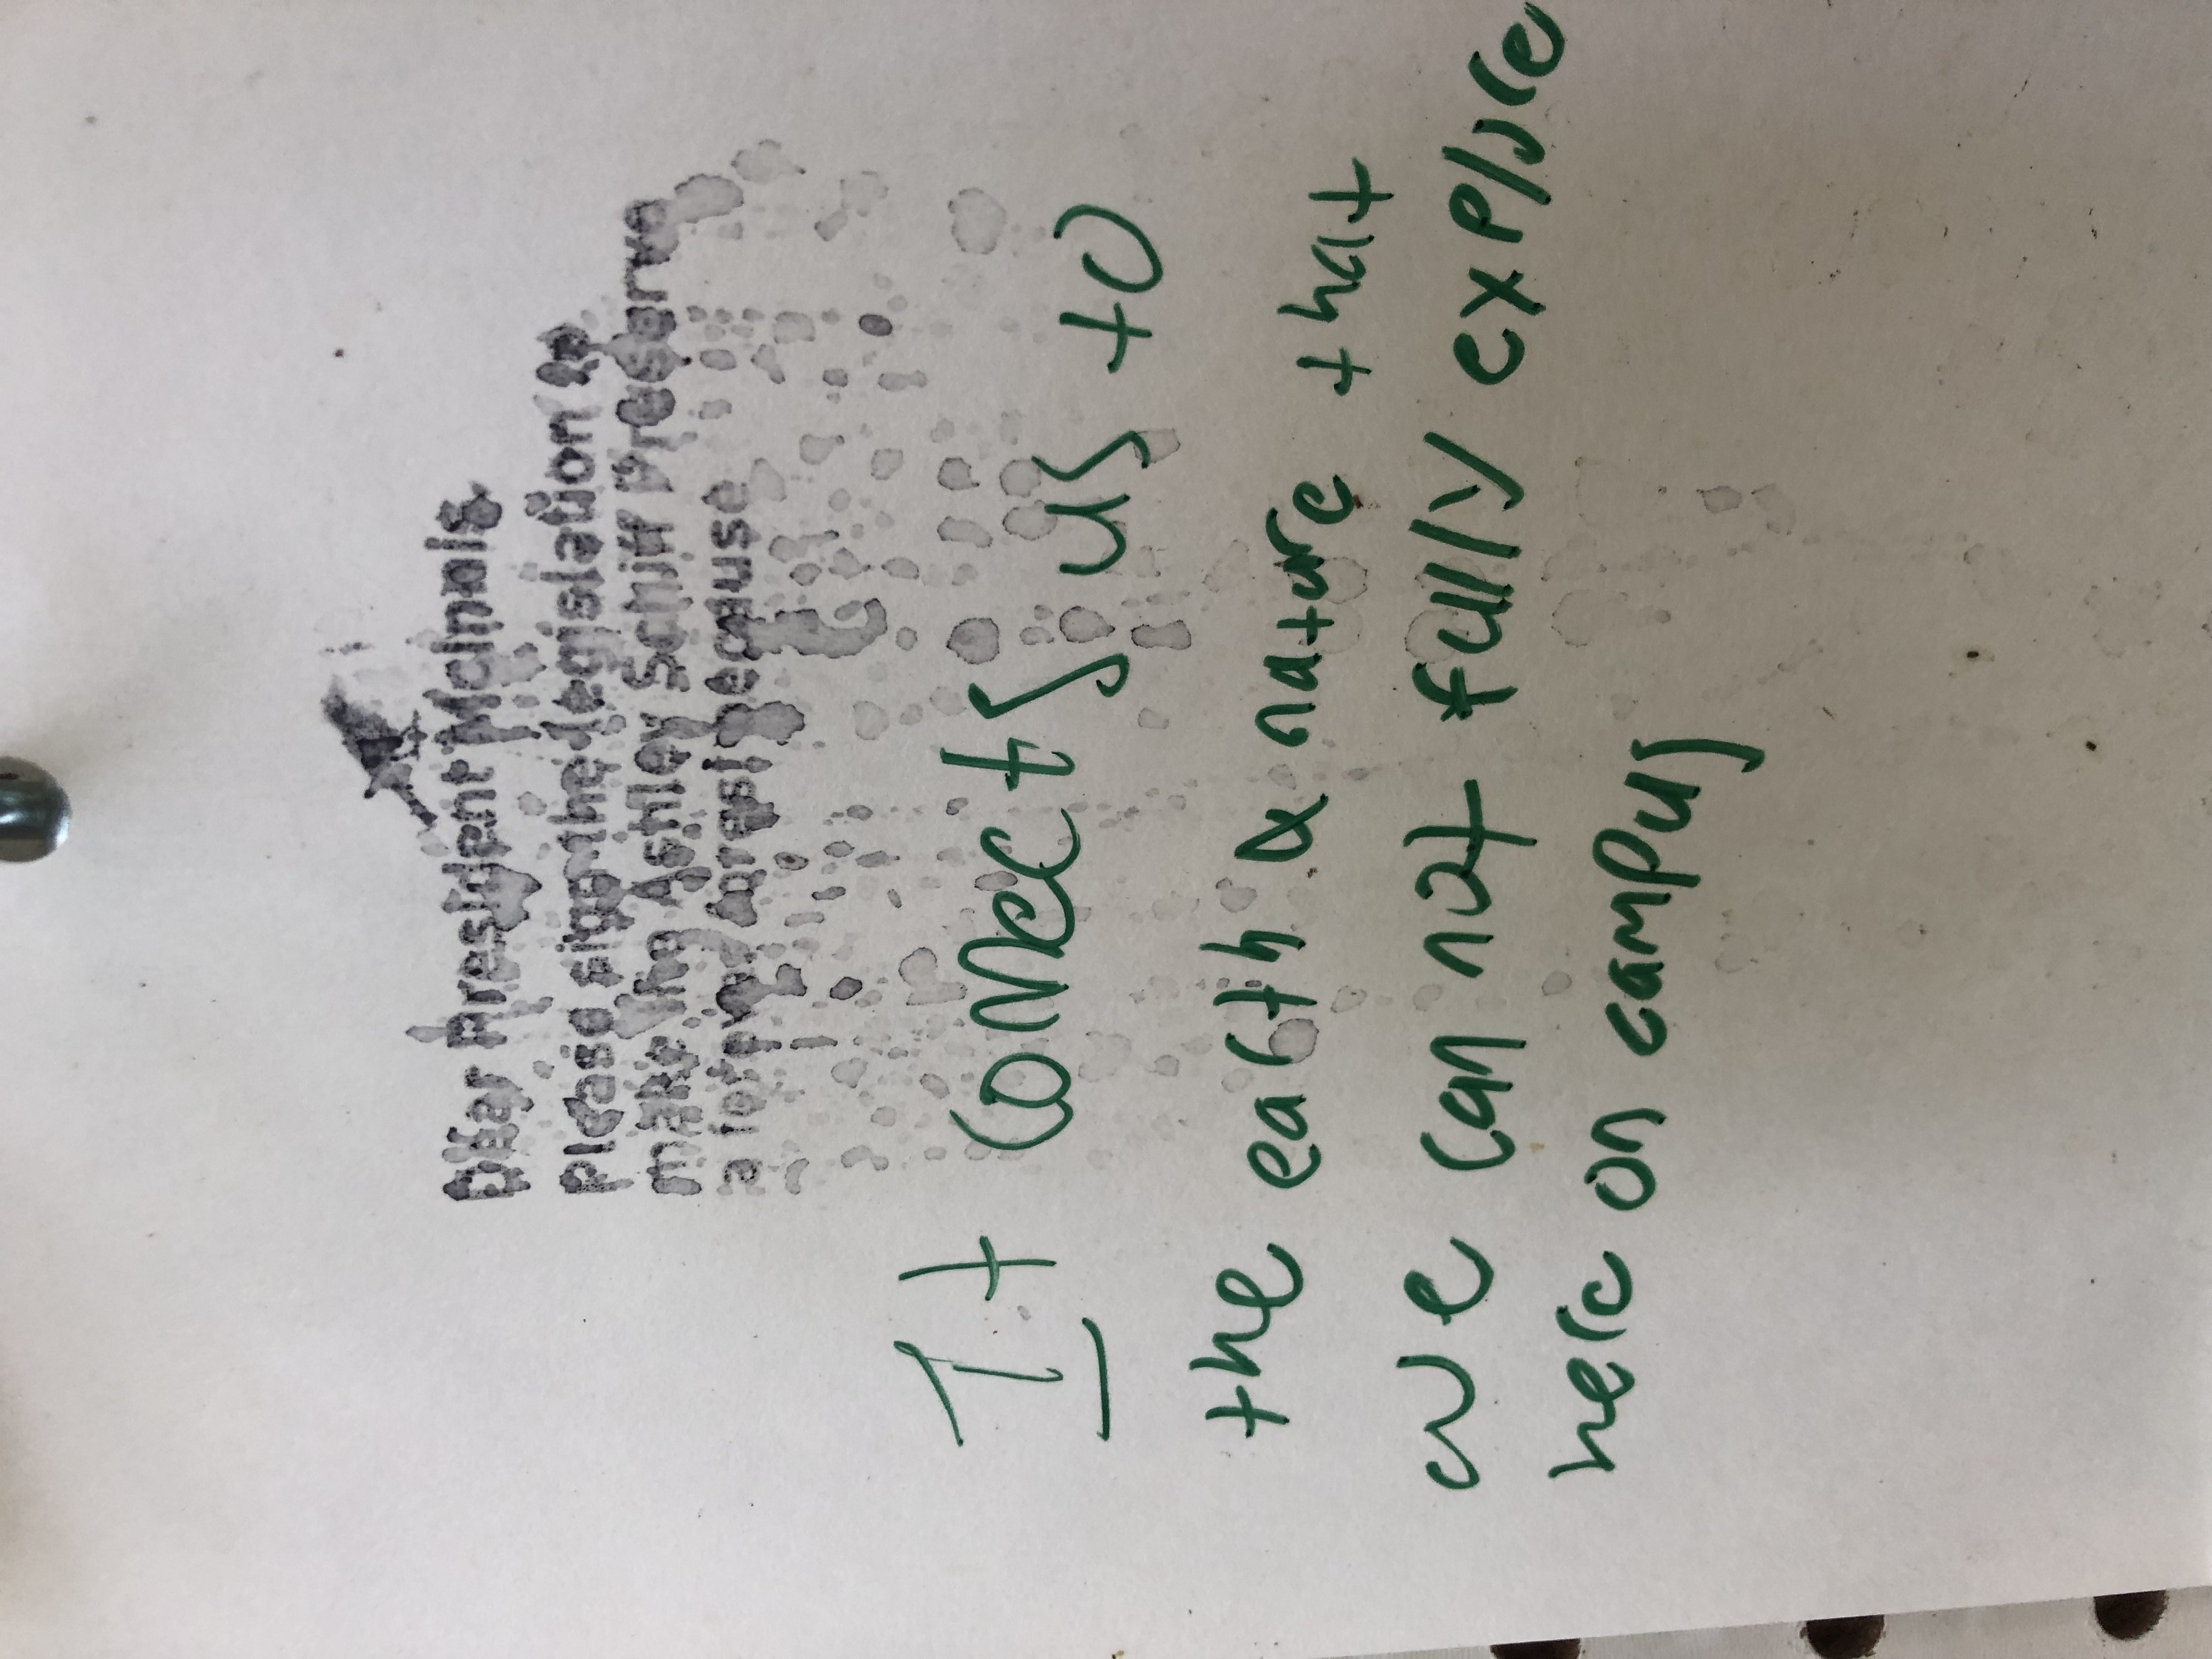 Dear President McInnis,
Please sign the legislation to
make the Ashley Schiff Preserve
a forever forest because
It connects us to
the earth & nature that
we can not fully explore
here on campus